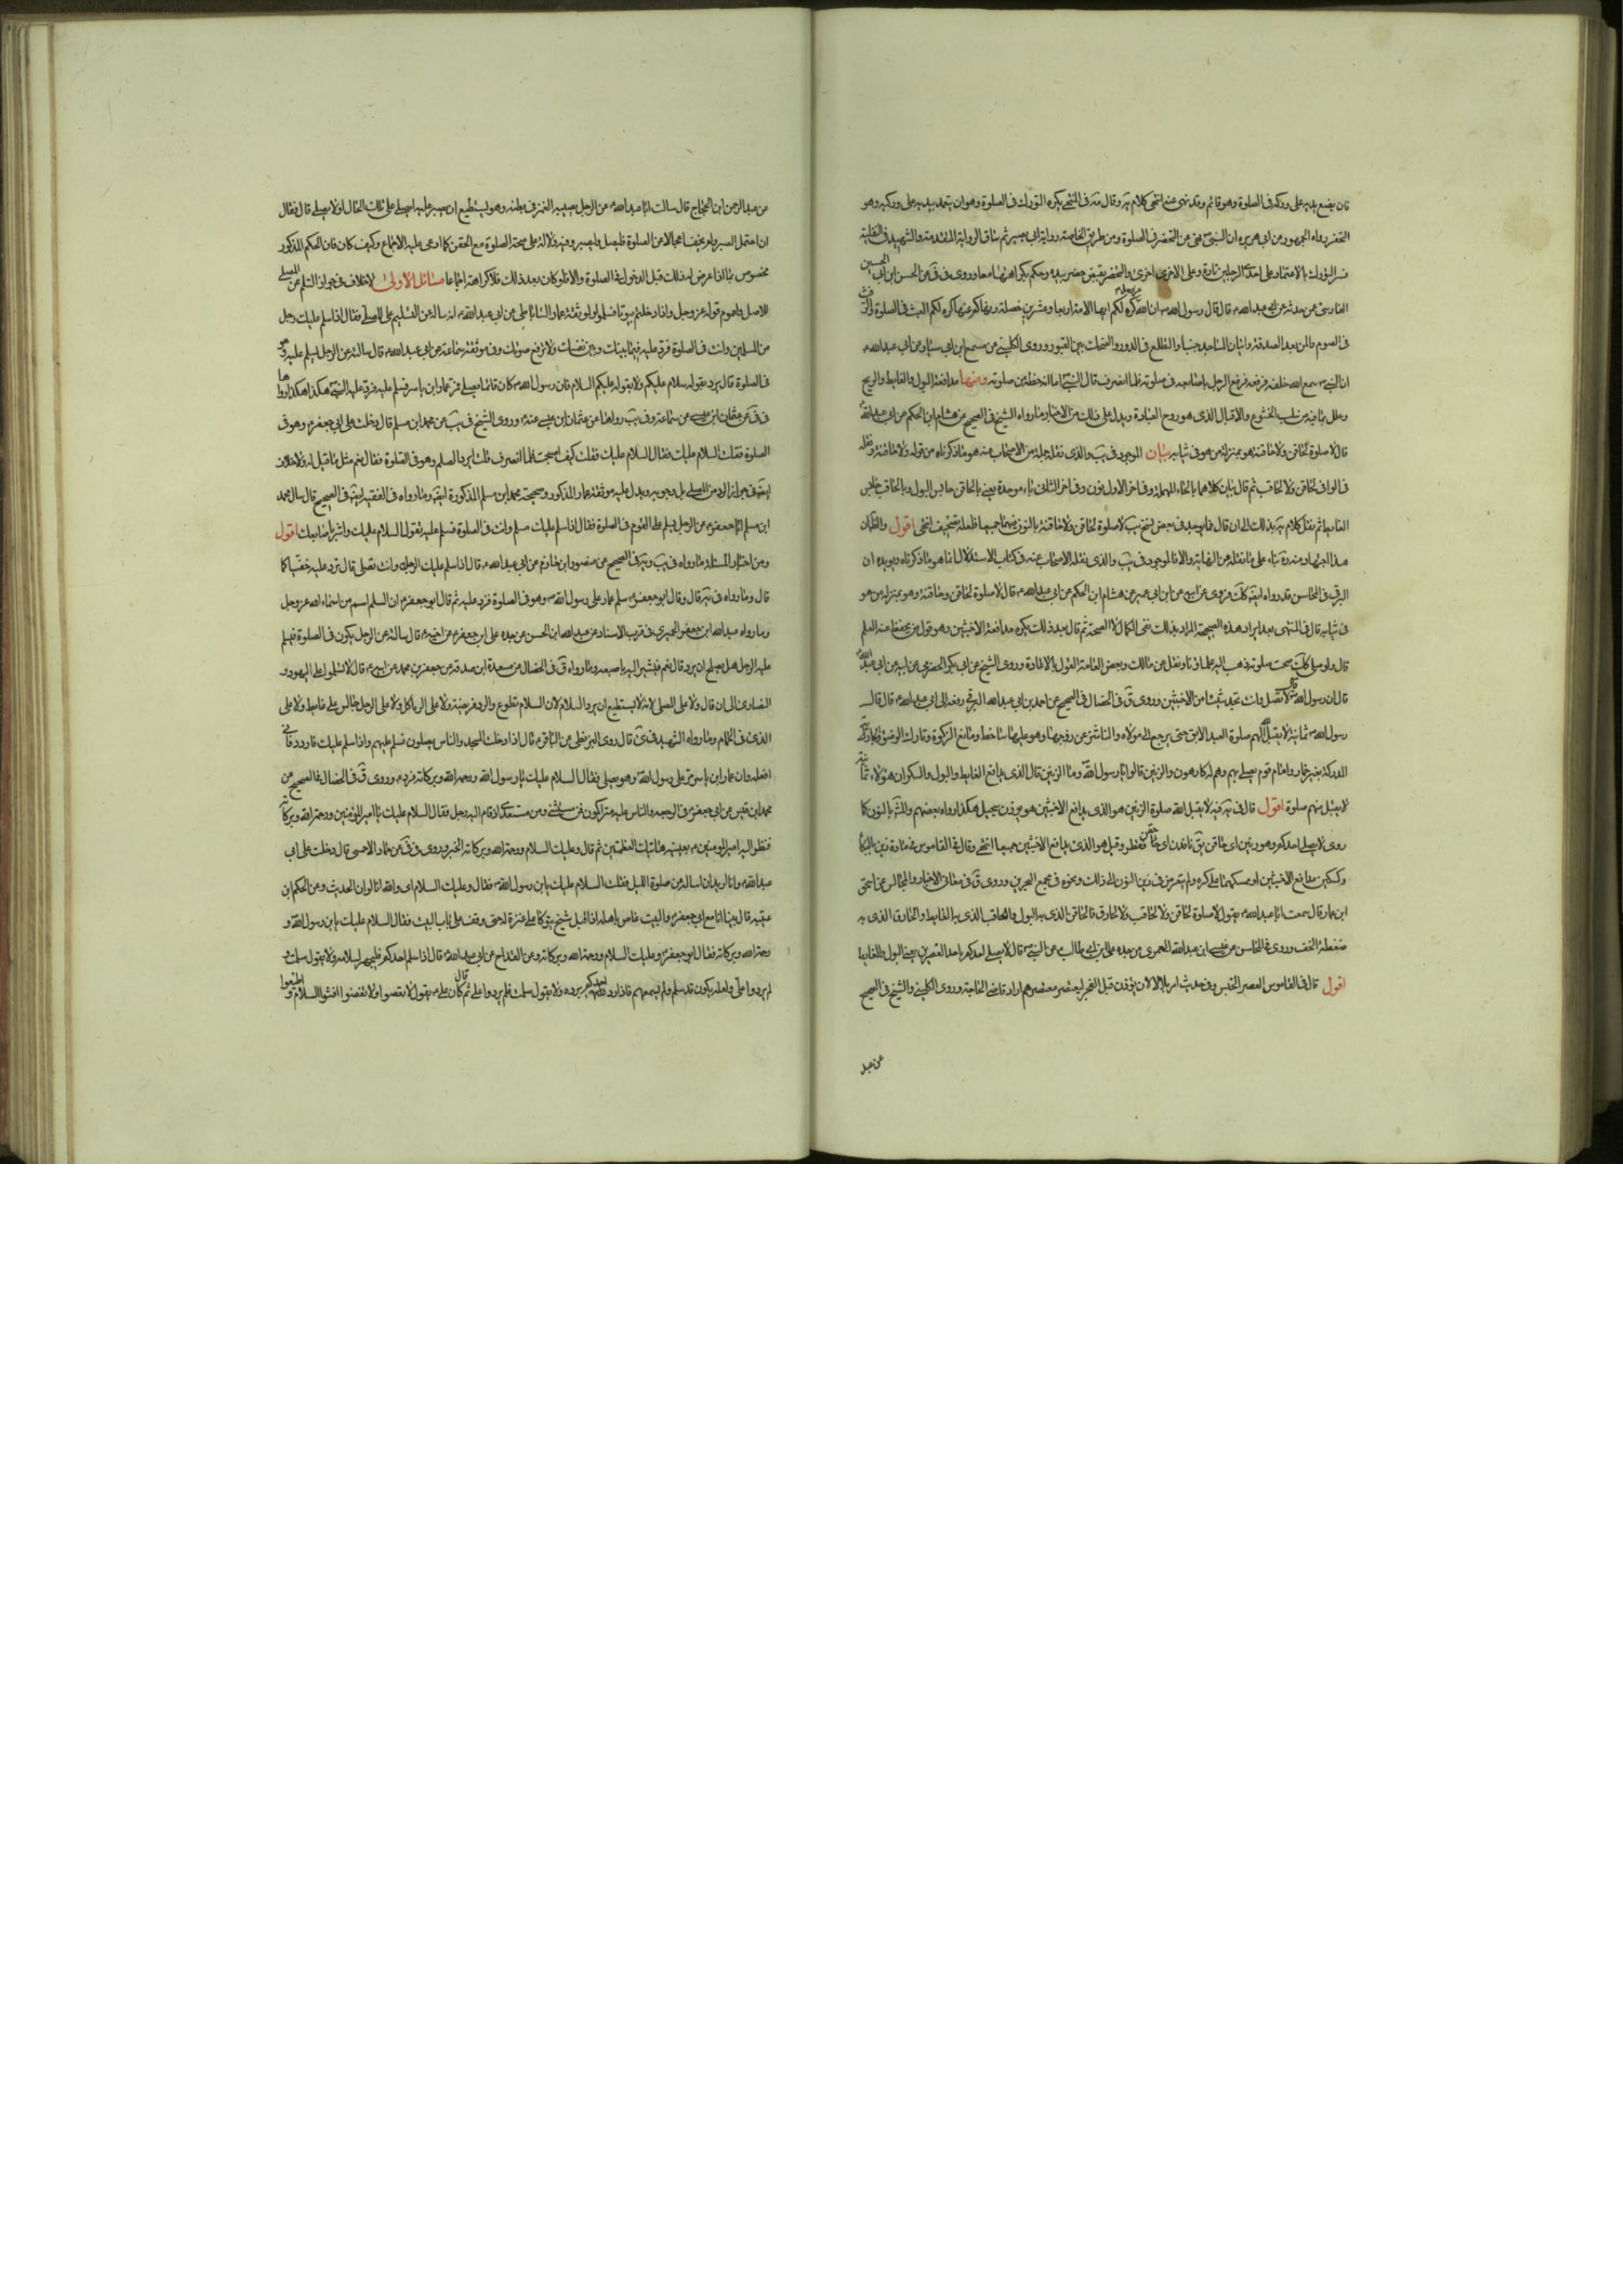 فان يضع يديه على وركه فى الصلوة وهو قائم وقد نهى عنه انتهى كلام يه وقال فى المنتهى يكره التورك فى الصلوة وهو ان يعتمد بيديه على وركيه وهو
التخصر رواه الجمهور عن ابى هريره ان النبى ص نهى عن التخصر فى الصلوة ومن طريق الخاصة رواية ابى بصير ثم ساق الرواية المتقدمة والشهيد فى النفلية
فسر التورك بالاعتماد على احدى الرجلين تارة وعلى الاخرى اخرى والتخصر بقبض خصره بيده وحكم بكراهتهما معا وروى فى عن الحسن ابن ابى الحسين
الفارسى عن حدثه عن ابى عبد الله ع قال قال رسول الله ص ان الله كره لكم ايها الامة اربعا وعشرين خصلة ونهاكم عنها كره لكم العبث فى الصلوة والرفث
فى الصوم والمن بعد الصدقة واتيان المساجد جنبا والتطلع فى الدور والضحك بين القبور وروى الكلينى عن مسمع ابن ابى سيار عن ابى عبد الله ع
ان النبى ص سمع الله خلفه فرقعه فرقع الرجل باصابعه فى صلوته فلما انصرف قال النبى ص اما انه حظه من صلوته ومنها مدافعة البول والغايط والريح
وعلل بما فيه من سلب الخشوع والاقبال الذى هو روح العبادة ويدل على ذلك من الاخبار ما رواه الشيخ فى الصحيح عن هشام ابن الحكم عن ابى عبد الله ع
قال لا صلوة لحاقن ولا لحاقنة وهو بمنزلة من هو فى ثيابه بيان الموجود فى يب والذى نقله جملة من الاصحاب عنه هو ما ذكرناه من قوله ولا لحاقنة ونقله
فى الوافى لحاقن ولا لحاقب ثم قال بيان كلاهما بالحاء المهملة وفى اخر الاول نون وفى اخر الثانى باء موحدة يعنى بالحاقن حابس البول وبالحاقب حابس
الغايط ثم نقل كلام يه بذلك الى ان قال فما يوجد فى بعض نسخ يب لا صلوة لحاقن ولا لحاقنة بالنون فيهما جميعا فلعله تصحيف انتهى اقول والظاهر ان
هذا اجتهاد منه قده بناء على ما نقله عن النهاية والا فالموجود فى يب والذى نقله الاصحاب عنه فى كتاب الاستدلال انما هو ما ذكرناه ويؤيده ان
البرقى فى المحاسن قد رواه ايضا كذلك فروى عن ابيه عن ابن ابى عمير عن هشام ابن الحكم عن ابى عبد الله ع قال لا صلوة لحاقن وحاقنة وهو بمنزلة من هو
فى ثيابه قال فى المنتهى بعد ايراد هذه الصحيحة المراد بذلك نفى الكمال لا الصحة ثم قال بعد ذلك يكره مدافعة الاخبثين وهو قول من يحفظ عنه العلم
قال ولو صلى كذلك صحت صلوته ذهب اليه علماؤنا ونقل عن مالك وبعض العامة القول بالاعادة وروى الشيخ عن ابى بكر الحضرمى عن ابيه عن ابى عبد الله ع
قال ان رسول الله ص قال لا تصل وانت تجد شيئا من الاخبثين وروى ق فى الخصال فى الصحيح عن احمد بن ابى عبد الله البرقى رفعه الى ابى عبد الله ع قال قال
رسول الله ص ثمانية لا يقبل الله لهم صلوة العبد الابق حتى يرجع الى مولاه والناشز عن زوجها وهو عليها ساخط ومانع الزكوة وتارك الوضوء والجارية
المدركة بغير خمار وامام قوم يصلى بهم وهم له كارهون والزبين قالوا يا رسول الله ص وما الزبين قال الذى يدافع الغايط والبول والسكران فهؤلاء ثمانية
لا يقبل منهم صلوة اقول قال فى يه فيه لا يقبل الله صلوة الزبين هو الذى يدافع الاخبثين هو بوزن سجيل هكذا رواه بعضهم والمشهور بالنون كما
روى لا يصلى احدكم وهو زبين اى حاقن
وكسكين مدافع الاخبثين او ممسكهما على كره ولم يتعرض فى زبن النون الى ذلك ونحوه فى مجمع البحرين وروى ق فى معانى الاخبار والمجالس عن اسحق
ابن عمار قال سمعت ابا عبد الله ع يقول لا صلوة لحاقن ولا لحاقب ولا لحازق فالحاقن الذى به البول والحاقب الذى به الغايط والحازق الذى به
ضغطة الخف وروى فى المحاسن عن عيسى ابن عبد الله العمرى عن جده على ابن ابى طالب عن النبى ص قال لا يصلى احدكم باحد العصرين يعنى البول والغايط
اقول قال فى القاموس العصر الحبس وفى حديث امر بلالا ان يؤذن قبل الفجر ليعتصر معتصرهم اراد قاضى الحاجة وروى الكلينى والشيخ فى الصحيح
عن عبد
عن عبد الرحمن ابن الحجاج قال سالت ابا عبد الله ع عن الرجل يصيبه الغمز فى بطنه وهو يستطيع ان يصبر عليه ايصلى على تلك الحال او لا يصلى قال فقال
ان احتمل الصبر ولم يخف اعجالا عن الصلوة فليصل وليصبر وفيه دلالة على صحة الصلوة مع الحقن كما ادعى عليه الاجماع وكيف كان فان الحكم المذكور
مخصوص بما اذا عرض له ذلك قبل الدخول فى الصلوة والا فلو كان بعد ذلك فلا كراهة اجماعا مسائل الاولى لا خلاف فى جواز السلم على المصلى
للاصل ولعموم قوله عز وجل واذا دخلتم بيوتا فسلموا ولموثقة عمار الساباطى عن ابى عبد الله ع انه ساله عن التسليم على المصلى فقال اذا سلم عليك رجل
من المسلمين وانت فى الصلوة فرد عليه فيما بينك وبين نفسك ولا ترفع صوتك وفى موثقة سماعة عن ابى عبد الله ع قال سالته عن الرجل يسلم عليه وهو
فى الصلوة قال يرد بقوله سلام عليكم ولا يقوله عليكم السلام فان رسول الله ص كان قائما يصلى فمر عمار ابن ياسر فسلم عليه فرد عليه النبى ص هكذا هكذا رواها
فى فى عن عثمان ابن عيسى عن سماعة وفى يب رواها عن عثمان ابن عيسى عنه ع وروى الشيخ فى يب عن محمد ابن مسلم قال دخلت على ابى جعفر ع وهو فى
الصلوة فقلت السلام عليك فقال السلام عليك فقلت كيف اصبحت فلما انصرف قلت ايرد السلم وهو فى الصلوة فقال نعم مثل ما قيل له ولا خلاف
ايضا فى جواز الرد من المصلى بل وجوبه ويدل عليه موثقة عمار المذكور وصحيحة محمد ابن مسلم المذكورة ايضا وما رواه فى الفقيه ايضا فى الصحيح قال سال محمد
ابن مسلم ابا جعفر ع عن الرجل يسلم على القوم فى الصلوة فقال اذا سلم عليك مسلم وانت فى الصلوة فسلم عليه تقول السلام عليك واشر باصابعك اقول
ومن اخبار المسئلة ما رواه فى يب ويه فى الصحيح عن منصور ابن حازم عن ابى عبد الله ع قال اذا سلم عليك الرجل وانت تصلى قال ترد عليه خفيا كما
قال وما رواه فى يه قال وقال ابو جعفر ع سلم عمار على رسول الله ص وهو فى الصلوة فرد عليه ثم قال ابو جعفر ع ان السلم اسم من اسماء الله عز وجل
وما رواه عبد الله ابن جعفر الحميرى فى قرب الاسناد عن عبد الله ابن الحسن عن جده على ابن جعفر ع عن اخيه ع قال سالته عن الرجل يكون فى الصلوة فيسلم
عليه الرجل هل يصلح ان يرد قال نعم فيشير اليه باصبعه وما رواه ق فى الخصال عن مسعدة ابن صدقة عن جعفر بن محمد عن ابيه ع قال لا تسلموا على اليهود و
النصارى الى ان قال ولا على المصلى لانه لا يستطيع ان يرد السلام لان السلام تطوع والرد فريضة ولا على اكل الربا ولا على الرجل جالس على غايط ولا على
الذى فى الحمام وما رواه الشهيد فى كرى قال روى البزنطى عن الباقر ع قال اذا دخلت المسجد والناس يصلون فسلم عليهم واذا سلم عليك فاردد فانى
افعله وان عمار ابن ياسر مر على رسول الله ص وهو يصلى فقال السلام عليك يا رسول الله ورحمة الله وبركاته فرد ع وروى ق فى الخصال فى الصحيح عن
محمد ابن قيس عن ابى جعفر ع فى الرحبة والناس عليه متراكمون فمن مستفتى ومن مستعدى اذ قام اليه رجل فقال السلام عليك يا امير المؤمنين ورحمة الله وبركاته
فنظر اليه امير المؤمنين ع بعينيه هاتيك العظيمتين ثم قال وعليك السلام ورحمة الله وبركاته الخبر وروى فى فى عن عمار الاحمسى قال دخلت على ابى
عبد الله ع وانا اريد ان اساله عن صلوة الليل فقلت السلام عليك يا بن رسول الله فقال وعليك السلام اى والله انا لولده الحديث وعن الحكم ابن
عتيبه قال بينا انا مع ابى جعفر ع والبيت غاص باهله اذ اقبل شيخ يتوكا على عنزة له حتى وقف على باب البيت فقال السلام عليك يا بن رسول الله و
رحمة الله وبركاته فقال ابو جعفر ع وعليك السلام ورحمة الله وبركاته وعن القداح عن ابى عبد الله ع قال اذا سلم احدكم فليجهر بسلامه ولا يقول سلمت
فلم يردوا على ولعله يكون قد سلم ولم يسمعهم فاذا رد احدكم فليجهر برده ولا يقول سلمت فلم يردوا على ثم قال كان على ع يقول لا تغضبوا ولا تغضبوا افشوا السلام واطيبوا